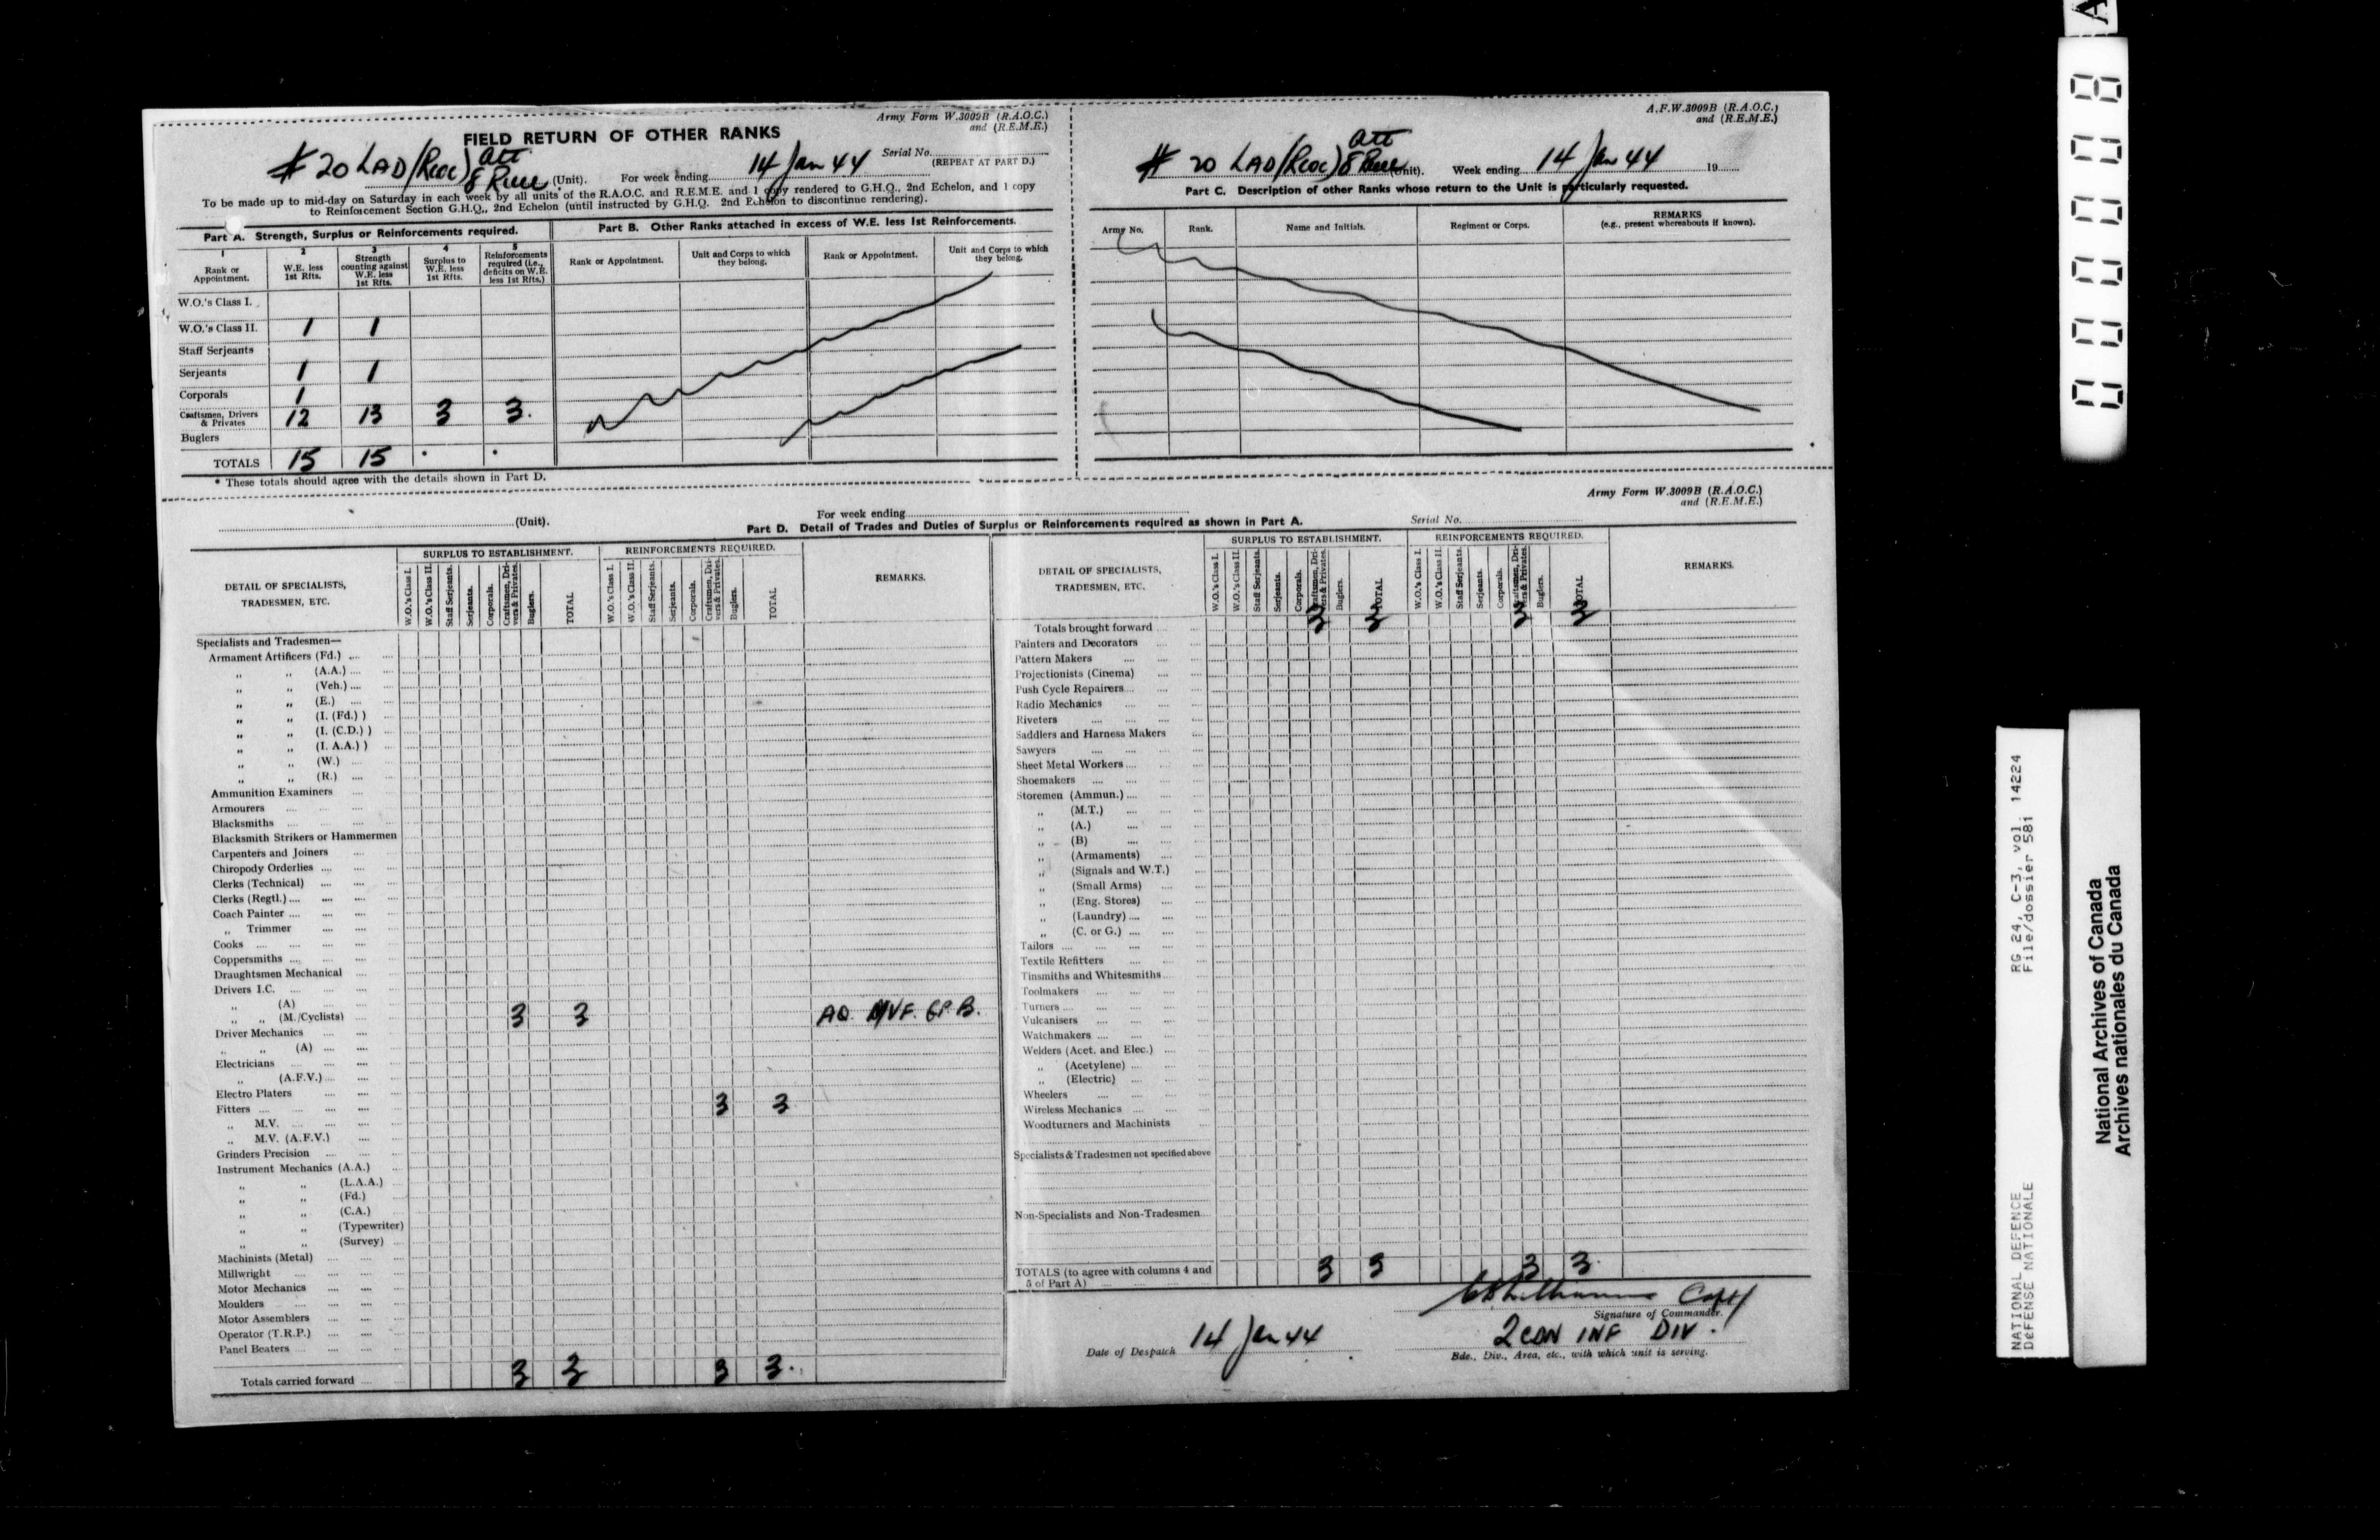 Army Form W.3009B (R.A.O.C.)
and (R.E.M.E.)
FIELD RETURN OF OTHER RANKS
# 20 LAD (Rece) att
8 Recce (Unit). For week ending 14 Jan 44 Serial No.
(REPEAT AT PART D.)
To be made up to mid-day on Saturday in each week by all units of the R.A.O.C. and R.E.M.E. and 1 copy rendered to G.H.Q., 2nd Echelon, and 1 copy
to Reinforcement Section G.H.Q., 2nd Echelon (until instructed by G.H.Q. 2nd Echelon to discontinue rendering).
Part A. Strength, Surplus or Reinforcements required.
1 2 3 4 5
Rank or Appointment. W.E. less 1st Rfts. Strength counting against W.E. less 1st Rfts. Surplus to W.E. less 1st Rfts. Reinforcements required (i.e., deficits on W.E. less 1st Rfts.)
W.O.'s Class I.
W.O.'s Class II. 1 1
Staff Serjeants
Serjeants 1 1
Corporals 1
Craftsmen, Drivers & Privates 12 13 3 3.
Buglers
TOTALS 15 15 * *
* These totals should agree with the details shown in Part D.
Part B. Other Ranks attached in excess of W.E. less 1st Reinforcements.
Rank or Appointment. Unit and Corps to which they belong. Rank or Appointment. Unit and Corps to which they belong.
A.F.W.3009B (R.A.O.C.)
and (R.E.M.E.)
# 20 LAD (Rece) att
8 Recce (Unit). Week ending 14 Jan 44 19
Part C. Description of other Ranks whose return to the Unit is particularly requested.
Army No. Rank. Name and Initials. Regiment or Corps. REMARKS (e.g., present whereabouts if known).
Army Form W.3009B (R.A.O.C.)
and (R.E.M.E.)
(Unit). For week ending Serial No.
Part D. Detail of Trades and Duties of Surplus or Reinforcements required as shown in Part A.
DETAIL OF SPECIALISTS, TRADESMEN, ETC. SURPLUS TO ESTABLISHMENT. REINFORCEMENTS REQUIRED. REMARKS.
W.O.'s Class I. W.O.'s Class II. Staff Serjeants. Serjeants. Corporals. Craftsmen, Drivers & Privates. Buglers. TOTAL W.O.'s Class I. W.O.'s Class II. Staff Serjeants. Serjeants. Corporals. Craftsmen, Drivers & Privates. Buglers. TOTAL
Specialists and Tradesmen—
Armament Artificers (Fd.)
„ „ (A.A.)
„ „ (Veh.)
„ „ (E.)
„ „ (I. (Fd.) )
„ „ (I. (C.D.) )
„ „ (I. A.A.) )
„ „ (W.)
„ „ (R.)
Ammunition Examiners
Armourers
Blacksmiths
Blacksmith Strikers or Hammermen
Carpenters and Joiners
Chiropody Orderlies
Clerks (Technical)
Clerks (Regtl.)
Coach Painter
„ Trimmer
Cooks
Coppersmiths
Draughtsmen Mechanical
Drivers I.C.
„ (A)
„ „ (M./Cyclists) 3 3 AQ MVF. GP. B.
Driver Mechanics
„ „ (A)
Electricians
„ (A.F.V.)
Electro Platers
Fitters 3 3
„ M.V.
„ M.V. (A.F.V.)
Grinders Precision
Instrument Mechanics (A.A.)
„ „ (L.A.A.)
„ „ (Fd.)
„ „ (C.A.)
„ „ (Typewriter)
„ „ (Survey)
Machinists (Metal)
Millwright
Motor Mechanics
Moulders
Motor Assemblers
Operator (T.R.P.)
Panel Beaters
Totals carried forward 3 3 3 3.
DETAIL OF SPECIALISTS, TRADESMEN, ETC. SURPLUS TO ESTABLISHMENT. REINFORCEMENTS REQUIRED. REMARKS.
W.O.'s Class I. W.O.'s Class II. Staff Serjeants. Serjeants. Corporals. Craftsmen, Drivers & Privates. Buglers. TOTAL W.O.'s Class I. W.O.'s Class II. Staff Serjeants. Serjeants. Corporals. Craftsmen, Drivers & Privates. Buglers. TOTAL
Totals brought forward 3 3 3 3
Painters and Decorators
Pattern Makers
Projectionists (Cinema)
Push Cycle Repairers
Radio Mechanics
Riveters
Saddlers and Harness Makers
Sawyers
Sheet Metal Workers
Shoemakers
Storemen (Ammun.)
„ (M.T.)
„ (A.)
„ (B)
„ (Armaments)
„ (Signals and W.T.)
„ (Small Arms)
„ (Eng. Stores)
„ (Laundry)
„ (C. or G.)
Tailors
Textile Refitters
Tinsmiths and Whitesmiths
Toolmakers
Turners
Vulcanisers
Watchmakers
Welders (Acet. and Elec.)
„ (Acetylene)
„ (Electric)
Wheelers
Wireless Mechanics
Woodturners and Machinists
Specialists & Tradesmen not specified above
Non-Specialists and Non-Tradesmen
TOTALS (to agree with columns 4 and 5 of Part A) 3 3 3 3.
Capt
Signature of Commander.
Date of Despatch 14 Jan 44 2 CDN INF DIV.
Bde., Div., Area, etc., with which unit is serving.
00008
A
RG 24, C-3, vol. 14224
File/dossier 581
NATIONAL DEFENCE
DÉFENSE NATIONALE
National Archives of Canada
Archives nationales du Canada